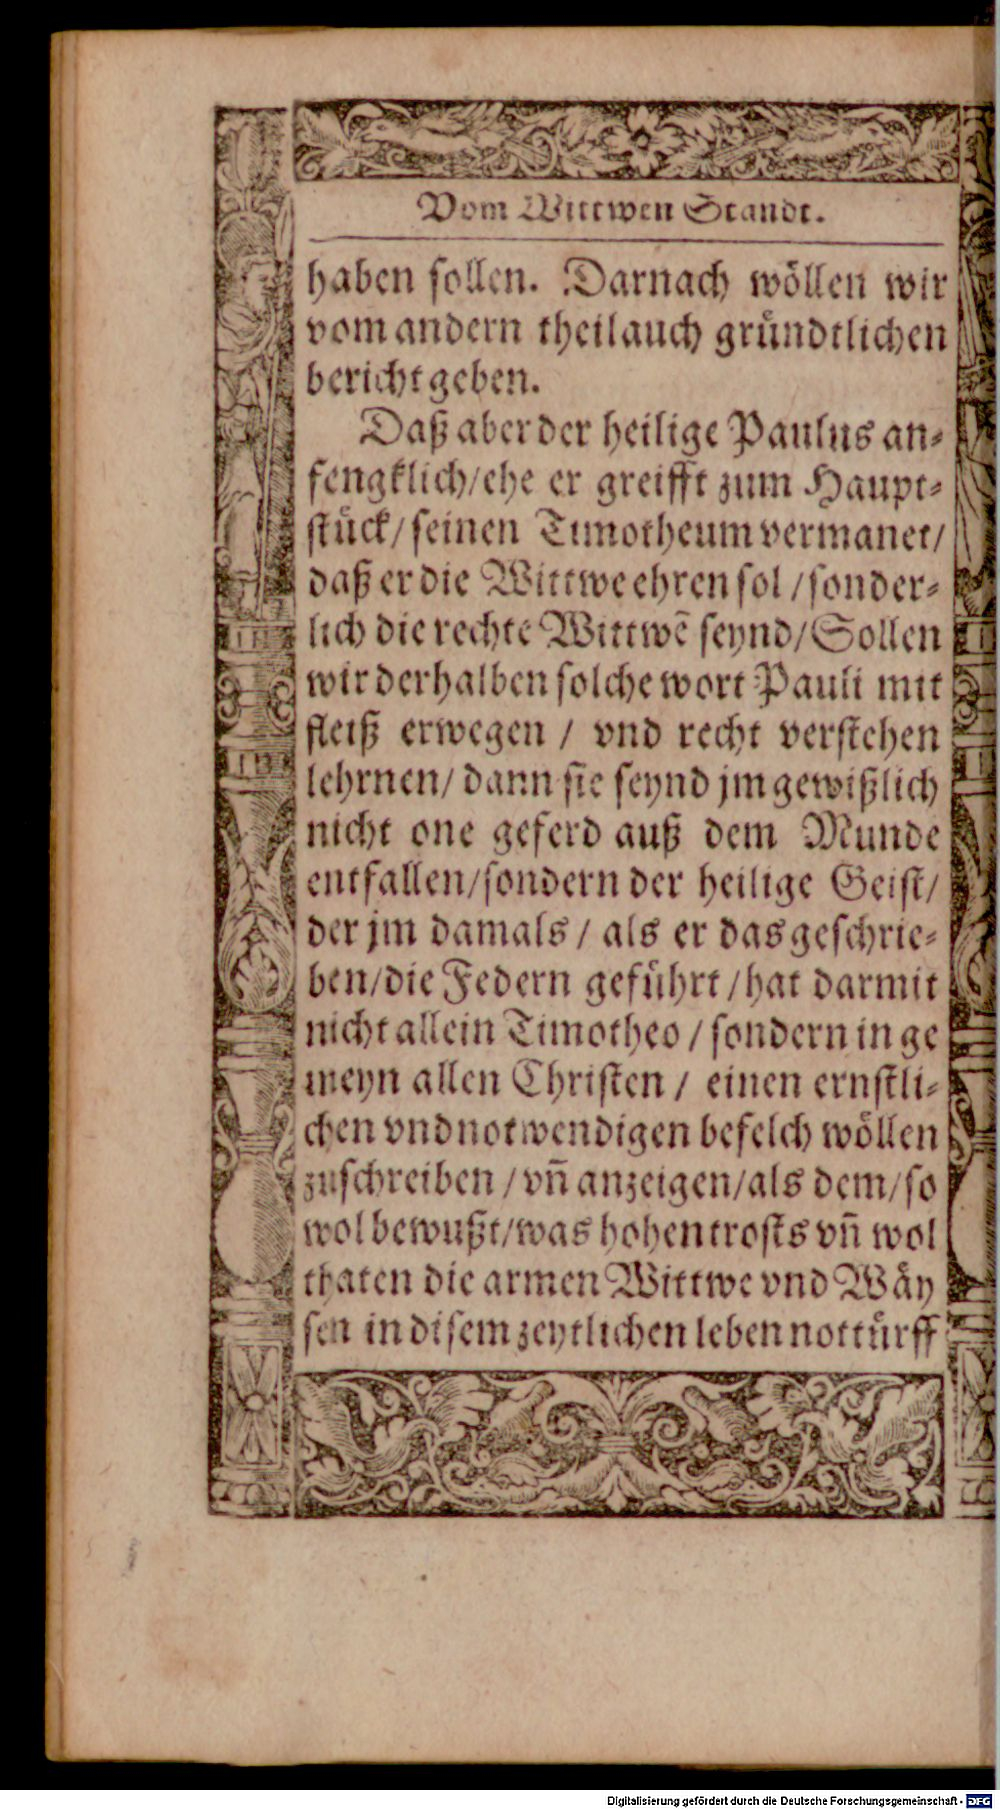 Vom Wittwen Standt.
haben sollen. Darnach wöllen wir
vom andern theil auch gründtlichen
bericht geben.
Daß aber der heilige Paulus an-
fengklich/ehe er greifft zum Haupt-
stück/ seinen Timotheum vermanet/
daß er die Wittwe ehren sol /sonder-
lich die rechte Wittwẽ seynd/Sollen
wir derhalben solche wort Pauli mit
fleiß erwegen / vnd recht verstehen
lehrnen/ dann sie seynd jm gewißlich
nicht one geferd auß dem Munde
entfallen/sondern der heilige Geist/
der jm damals / als er das geschrie-
ben/die Federn geführt /hat darmit
nicht allein Timotheo / sondern in ge
meyn allen Christen / einen ernstli-
chen vnd notwendigen befelch wöllen
zuschreiben / vñ anzeigen/als dem/so
wol bewußt/was hohen trosts vñ wol
thaten die armen Wittwe vnd Wäy
sen in disem zeytlichen leben nottürff
Digitalisierung gefördert durch die Deutsche Forschungsgemeinschaft - DFG